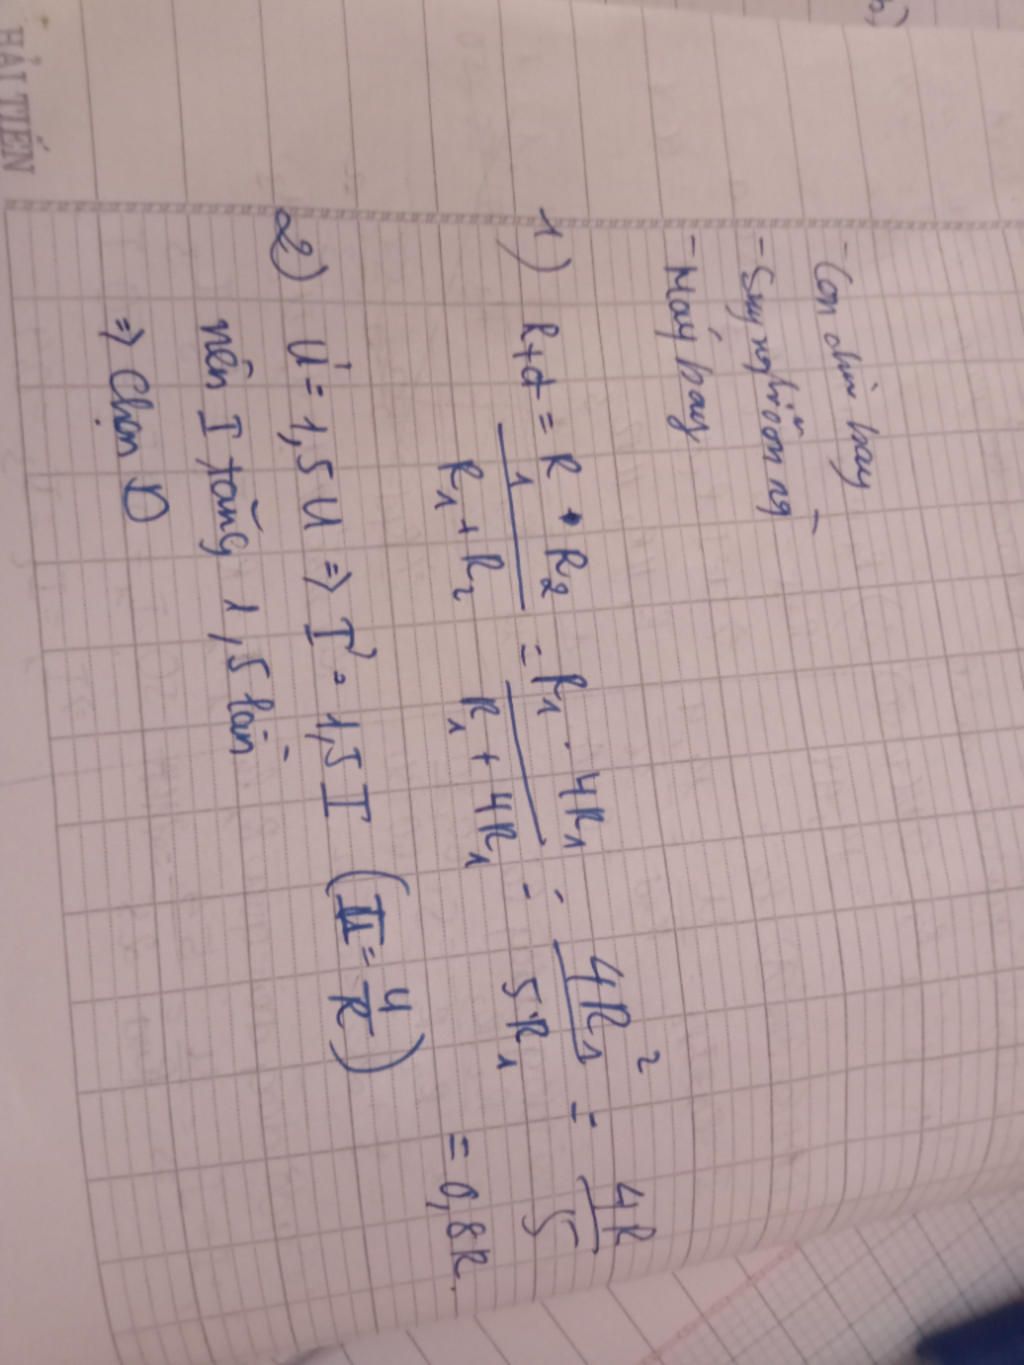 HẢI TIẾN
- Con chim bay
- Suy
- Máy bay
1) Rtđ = R1 . R2 / R1 + R2 = R1 . 4R1 / R1 + 4R1 = 4R1² / 5R1 = 4R / 5
= 0,8R.
2) U' = 1,5U => I' = 1,5I (I = U / R)
nên I tăng 1,5 lần
=> Chọn D